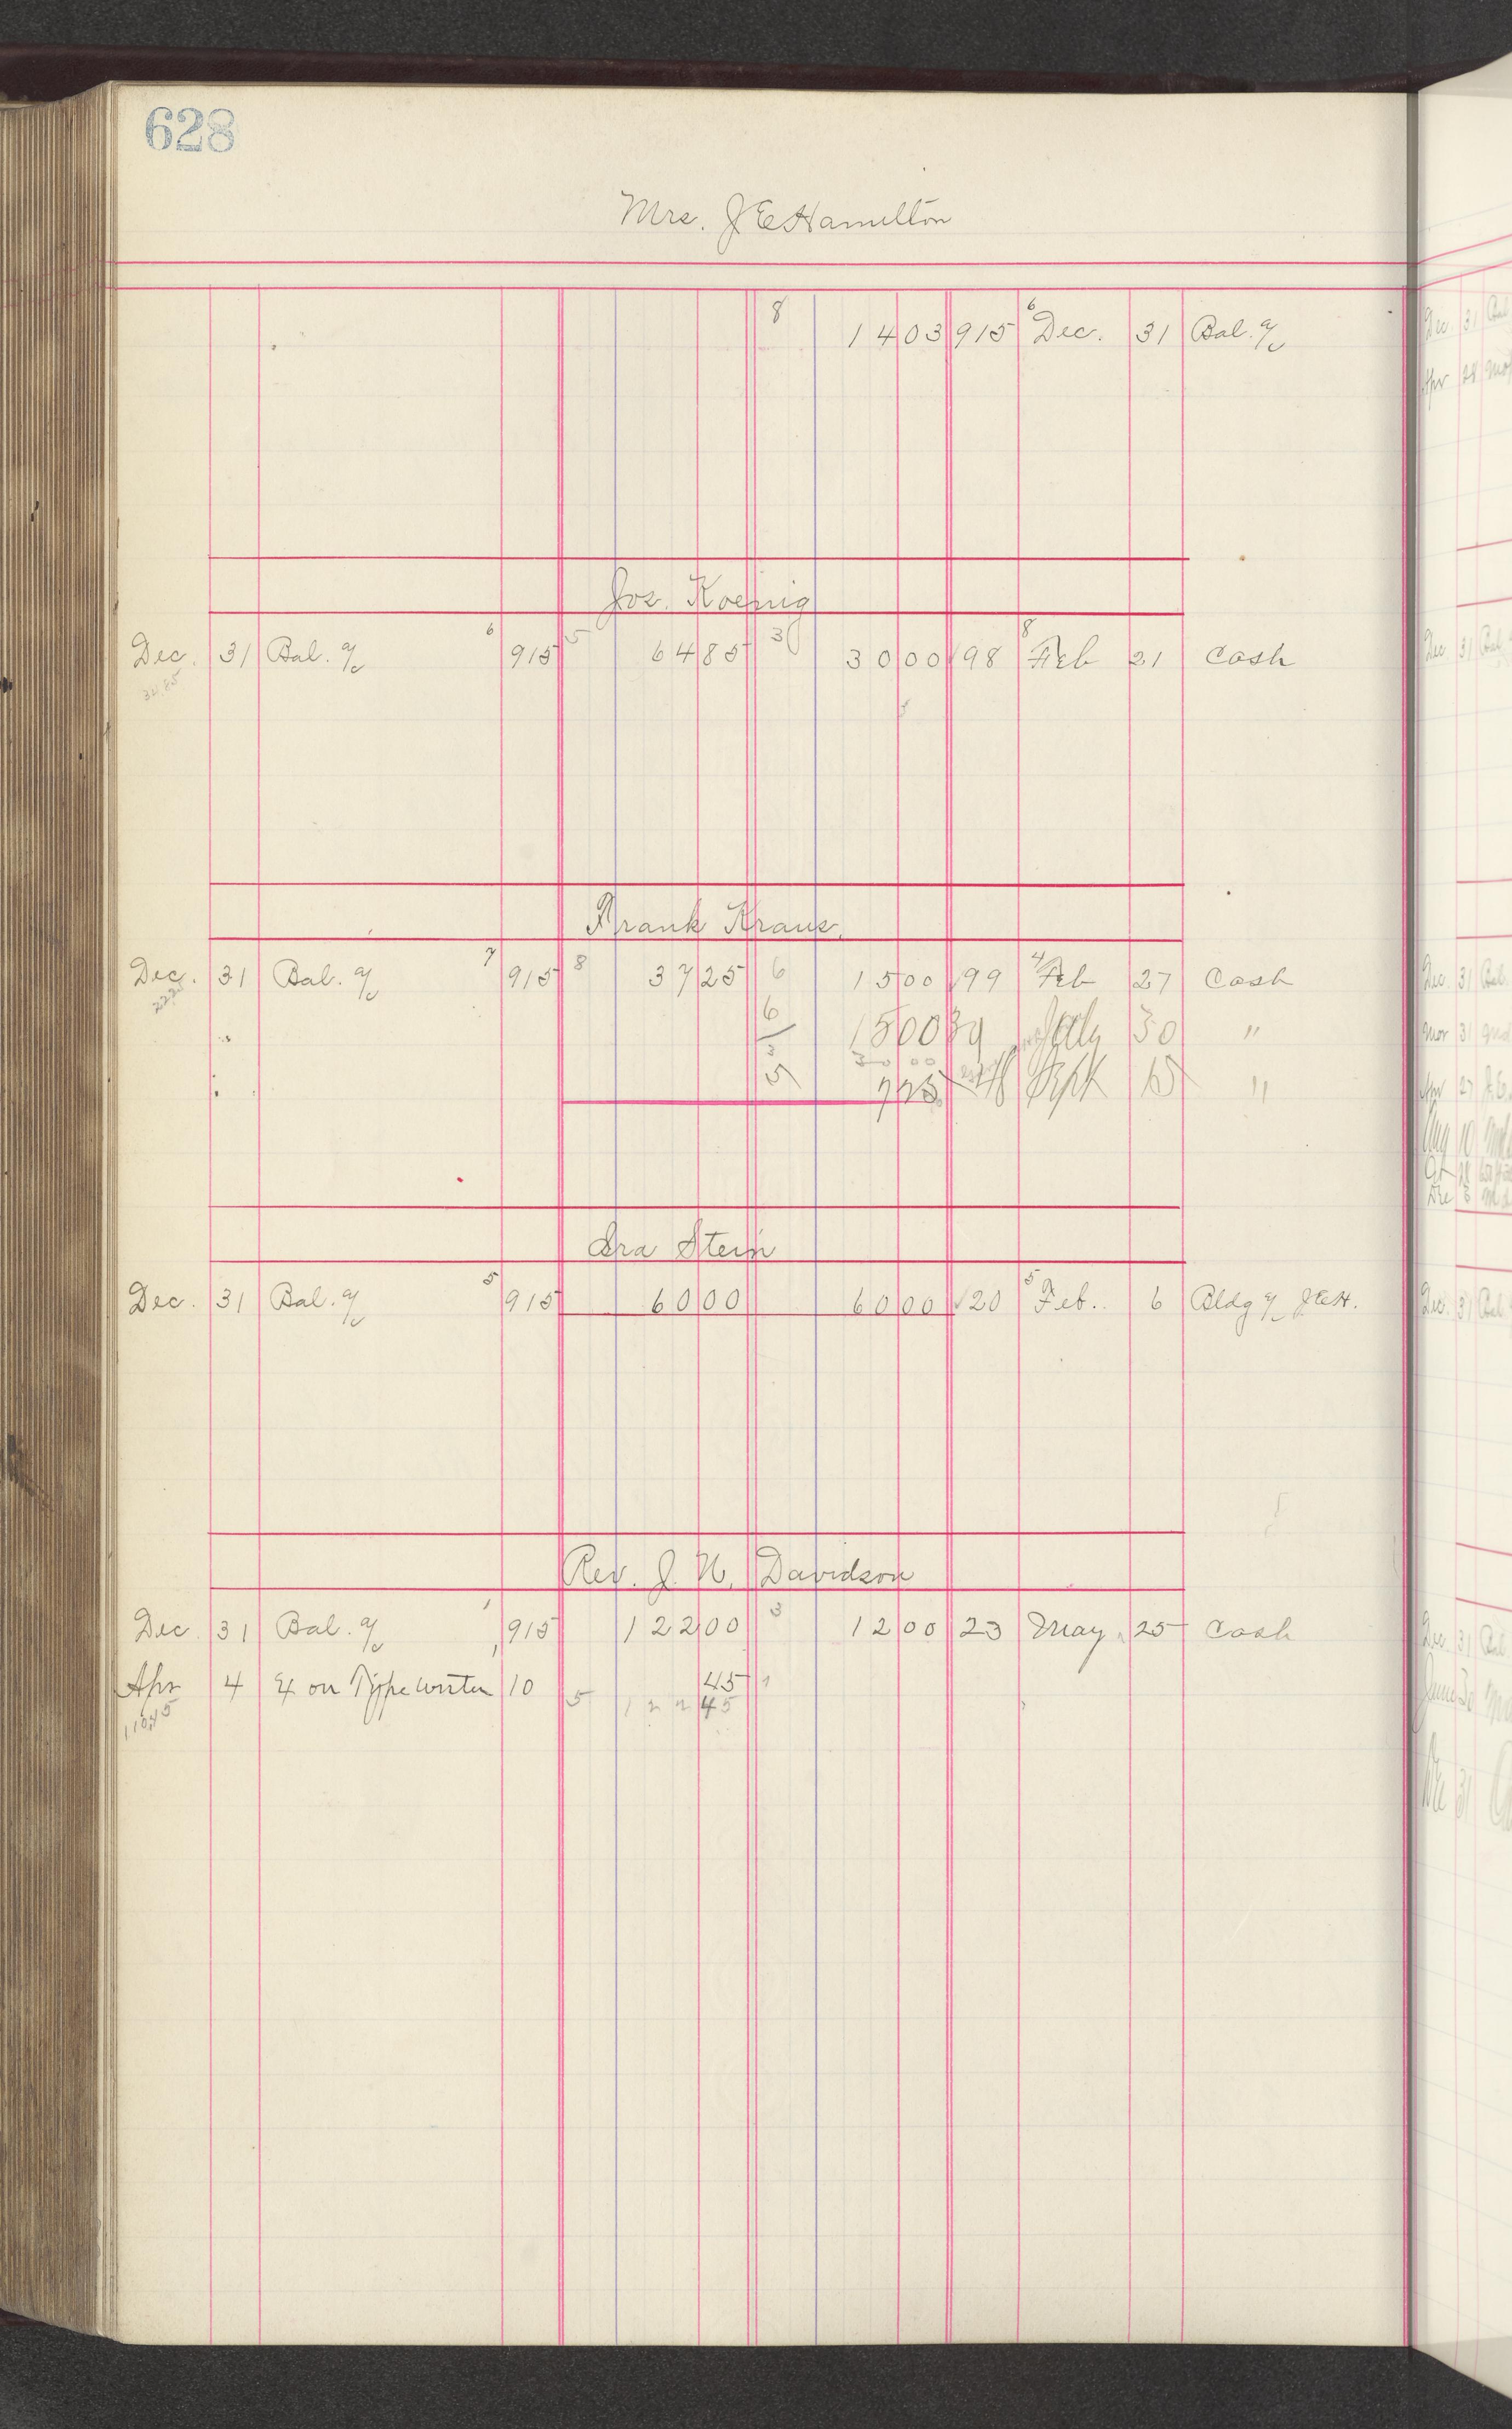 628
Mrs. J E Hamilton
8 14 03 915 6 Dec. 31 Bal. a/c
Jos. Koenig
Dec. 31 Bal. a/c 6 915 5 64 85 30 30 00 198 8 Feb 21 Cash
34.85
Frank Kraus.
Dec. 31 Bal. a/c 7 915 8 37 25 6 15 00 199 4 Feb 27 Cash
22.25
6 15 00 39 July 30 "
30 00
7 25 Sept 15 "
Ira Stein
Dec. 31 Bal. a/c 5 915 60 00 60 00 120 5 Feb. 6 Bldg a/c J.E.H.
Rev. J. N. Davidson
Dec. 31 Bal. a/c 1 915 122 00 3 12 00 23 May 25 Cash
Apr 4 Ex on Typewriter 10 45 1
110.45 5 122 45